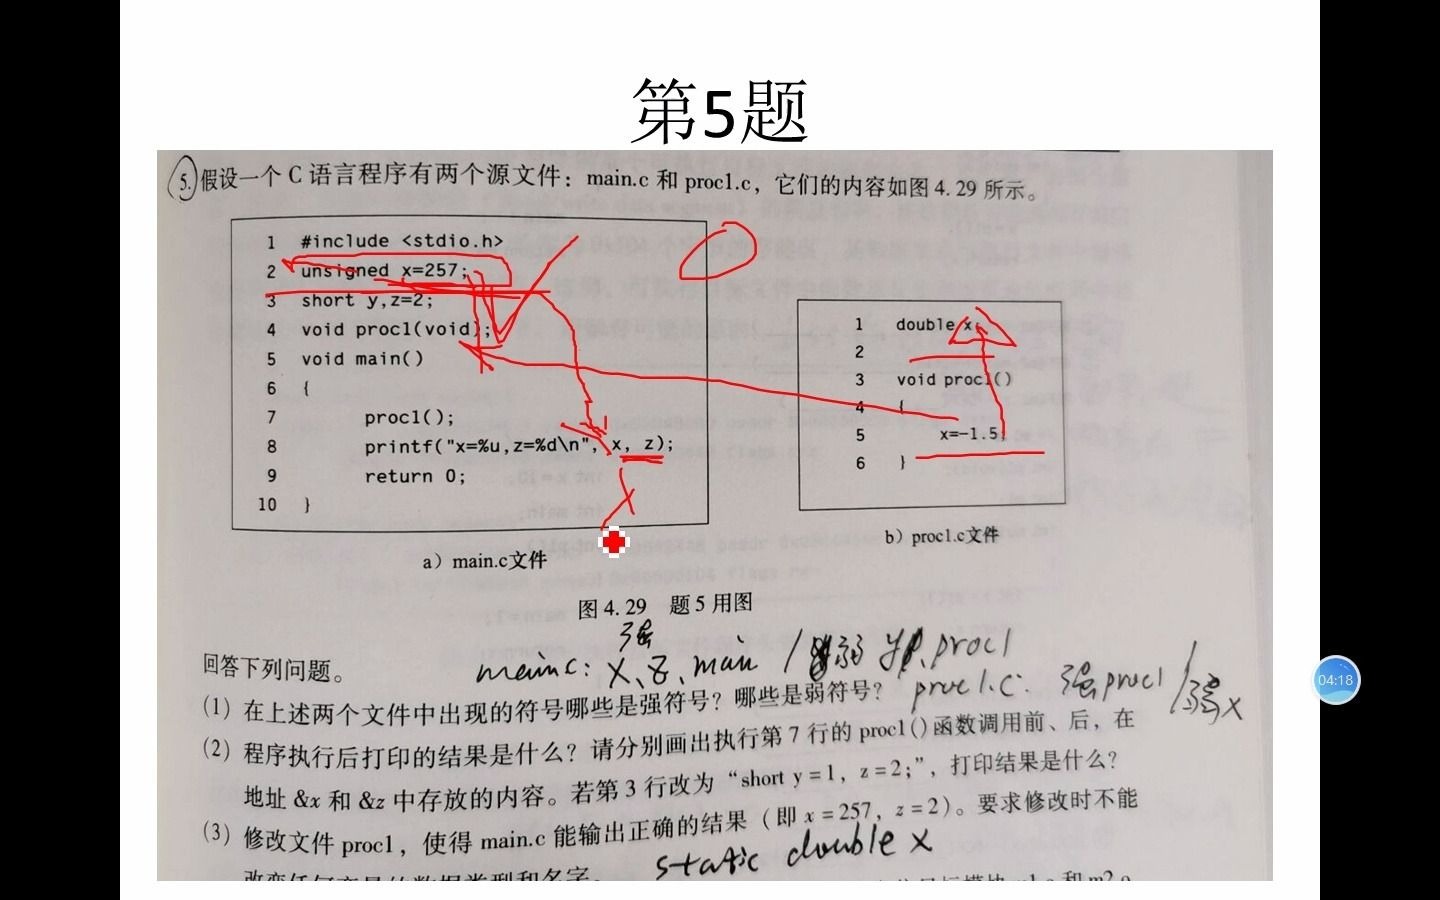 第5题
5. 假设一个 C 语言程序有两个源文件：main.c 和 proc1.c，它们的内容如图 4.29 所示。
1 #include <stdio.h>
2 unsigned x=257;
3 short y,z=2;
4 void proc1(void);
5 void main()
6 {
7 proc1();
8 printf("x=%u,z=%d\n", x, z);
9 return 0;
10 }
a）main.c文件
1 double x;
2
3 void proc1()
4 {
5 x=-1.5;
6 }
b）proc1.c文件
图 4.29 题 5 用图
回答下列问题。
强
main.c: x、z、main / 弱 y、proc1
proc1.c: 强proc1 / 弱x
(1) 在上述两个文件中出现的符号哪些是强符号？哪些是弱符号？
(2) 程序执行后打印的结果是什么？请分别画出执行第 7 行的 proc1()函数调用前、后，在
地址 &x 和 &z 中存放的内容。若第 3 行改为 “short y=1，z=2;”，打印结果是什么？
(3) 修改文件 proc1，使得 main.c 能输出正确的结果（即 x=257，z=2）。要求修改时不能
static double x
04:18